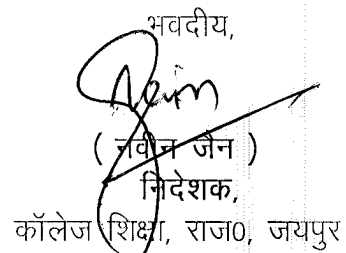 भवदीय,
( नवीन जैन )
निदेशक,
कॉलेज शिक्षा, राज0, जयपुर